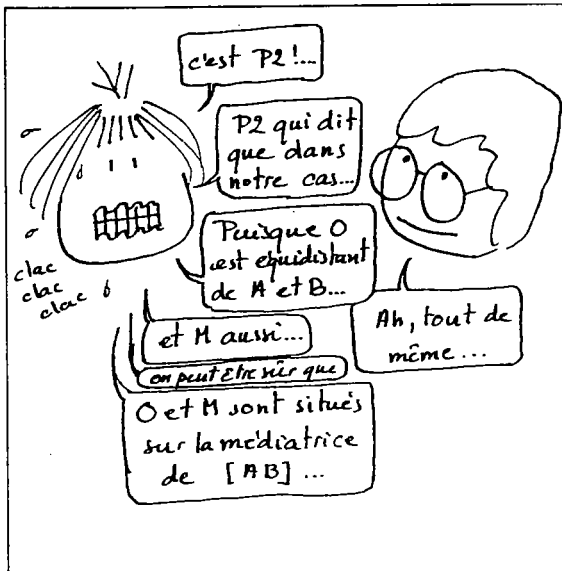 c'est P2 !...
P2 qui dit
que dans
notre cas...
Puisque O
est equidistant
de A et B...
clac
clac
clac
et M aussi...
on peut être sûr que
O et M sont situés
sur la médiatrice
de [AB] ...
Ah, tout de
même ...